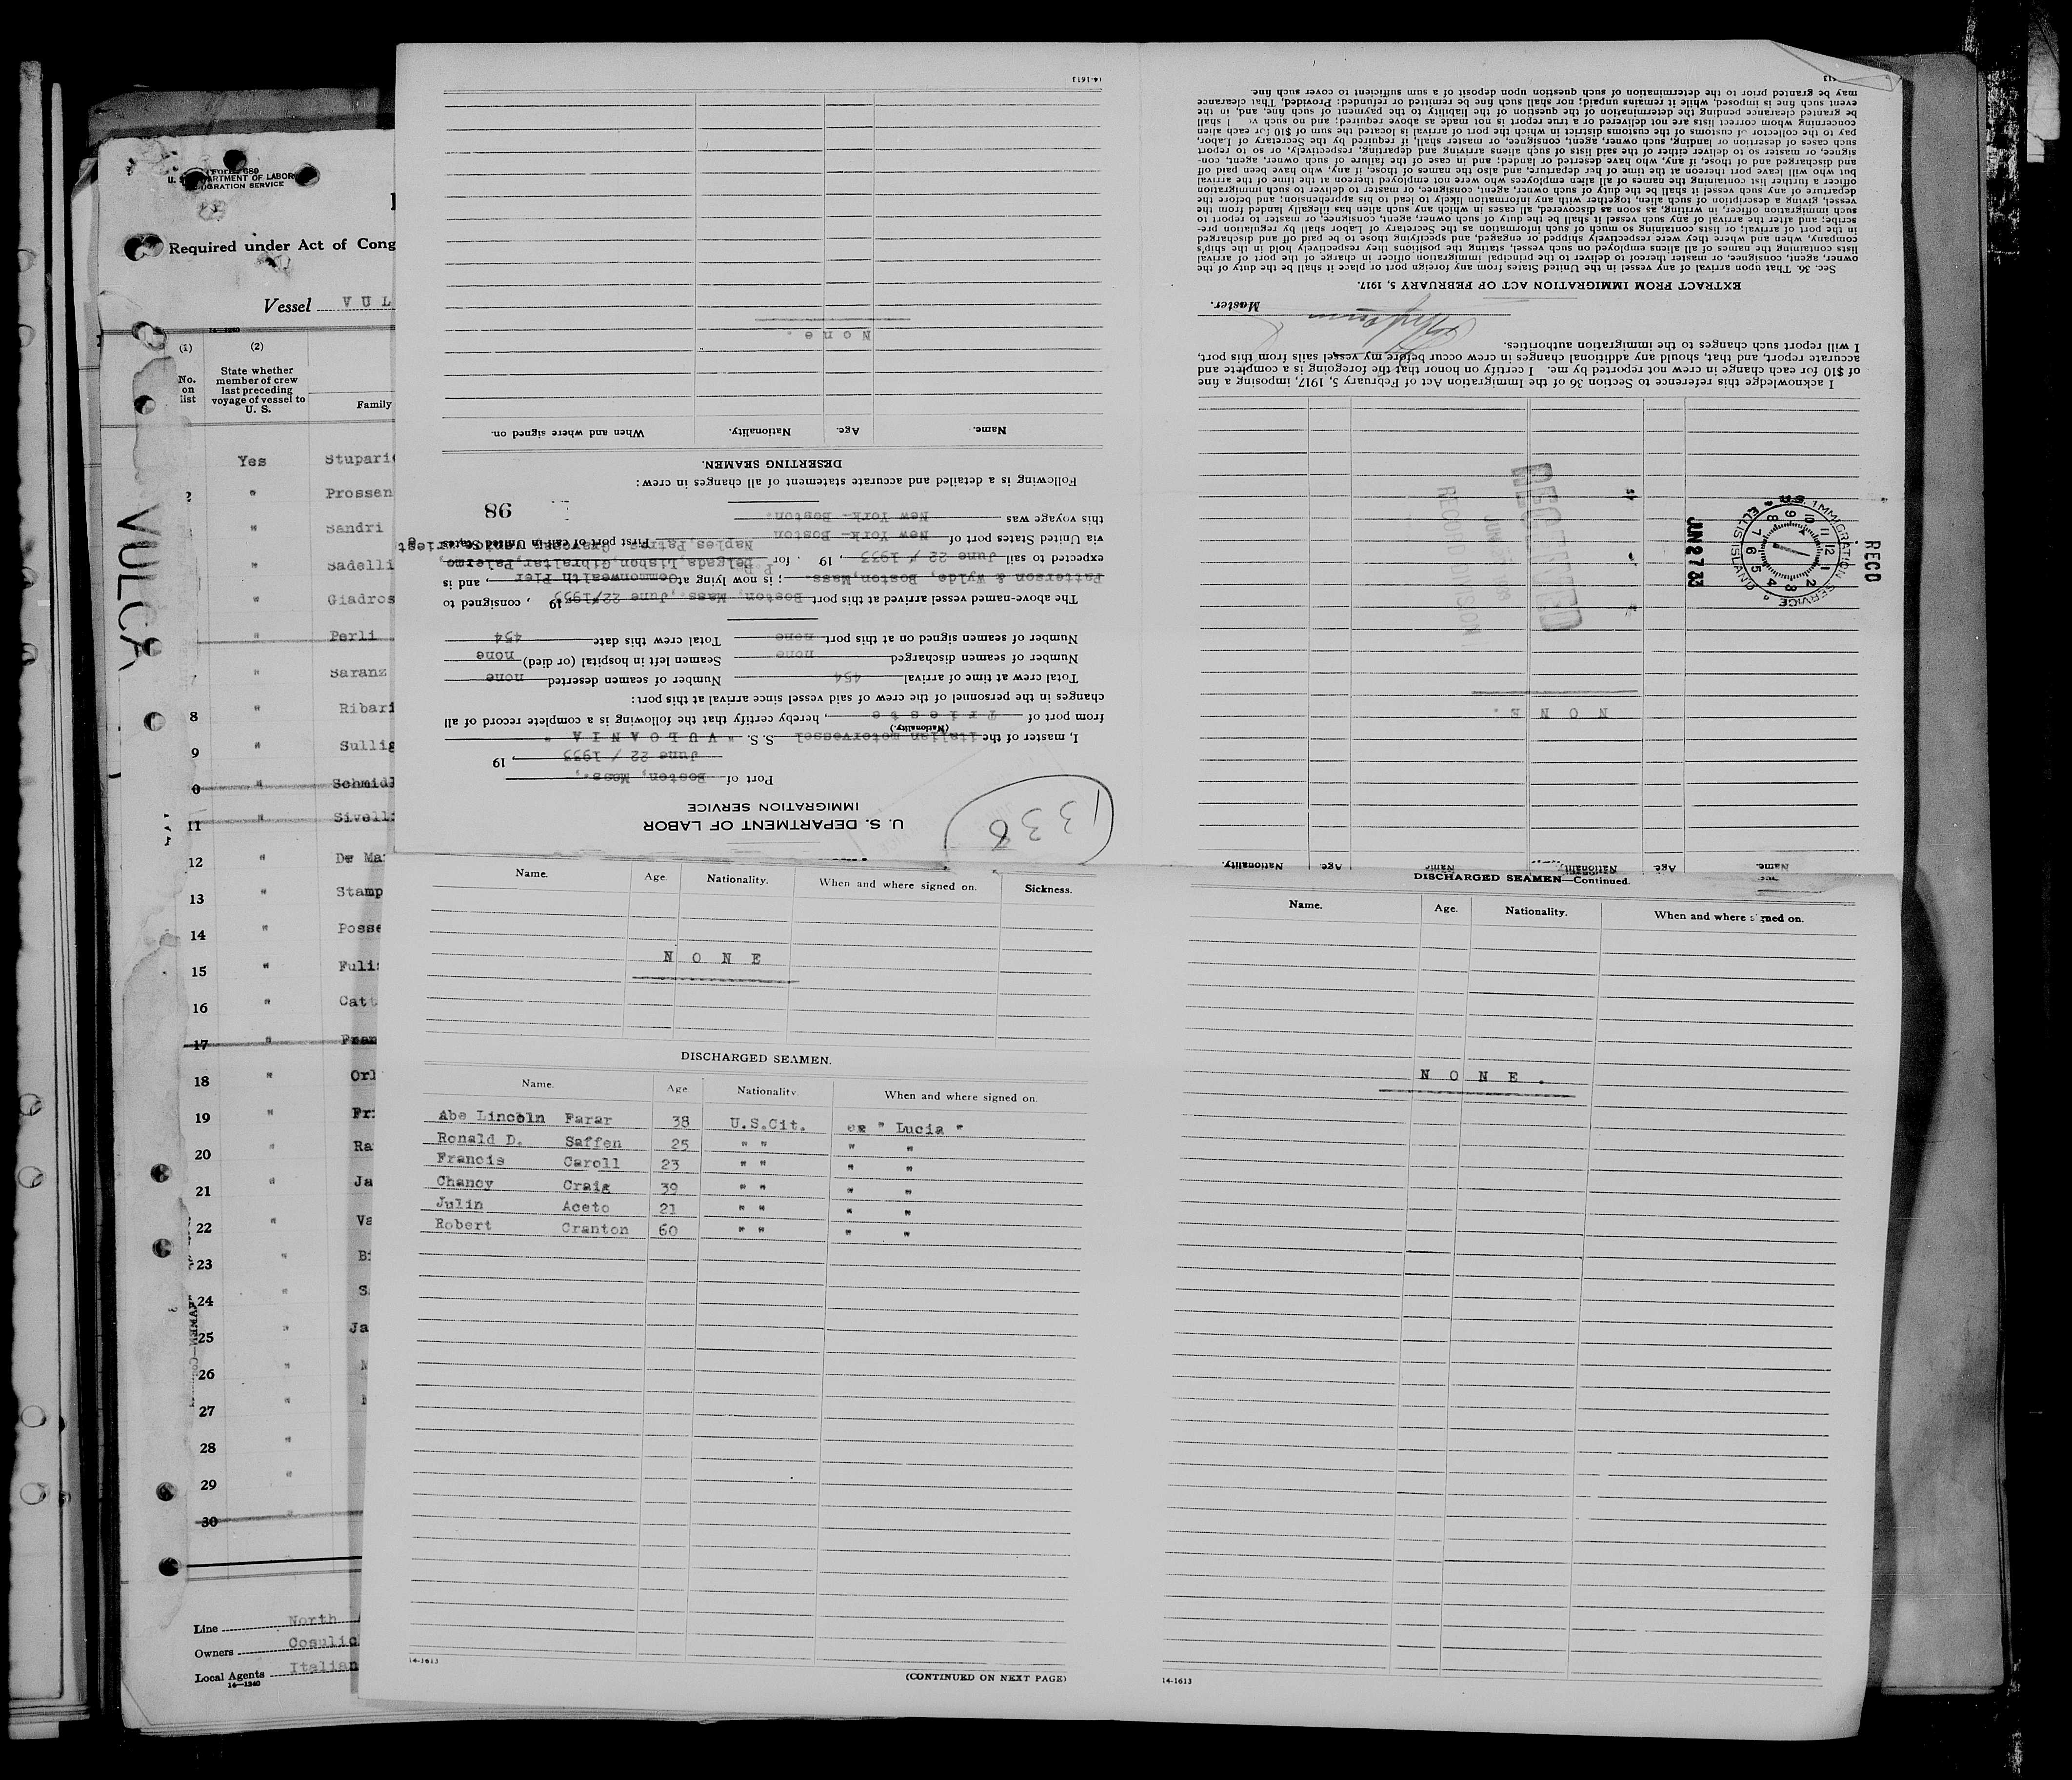 Form 680
U. S. DEPARTMENT OF LABOR
IMMIGRATION SERVICE
Required under Act of Cong
Vessel VUL
14—1240
(1)
(2)
No. on list
State whether member of crew last preceding voyage of vessel to U. S.
Family
VULCA
Yes Stupari
2 " Prossen
" Sandri
" Sadelli
" Giadros
" Perli
7 " Saranz
8 " Ribari
9 " Sullig
0 " Schmid
11 " Sivell
12 " De Ma
13 " Stamp
14 " Posse
15 " Fuli
16 " Catt
17 " Fran
18 " Orl
19 " Fri
20 " Ra
21 " Ja
22 " Va
23 " Bi
24 " S
25 " Ja
26 "
27 "
28 "
29 "
30 "
Line North
Owners Cosulic
Local Agents Italian
14—1240
1338
U. S. DEPARTMENT OF LABOR
IMMIGRATION SERVICE
Port of Boston, Mass.,
June 22 / 1933, 19
I, master of the italian motorvessel S.S. " VULCANIA "
(Nationality)
from port of Trieste, hereby certify that the following is a complete record of all
changes in the personnel of the crew of said vessel since arrival at this port:
Total crew at time of arrival 454 Number of seamen deserted none
Number of seamen discharged none Seamen left in hospital (or died) none
Number of seamen signed on at this port none Total crew this date 454
The above-named vessel arrived at this port Boston, Mass., June 22/1933 19 , consigned to
Patterson & Wylde, Boston, Mass. ; is now lying at Commonwealth Pier , and is
expected to sail June 22 / 1933 , 19 . for P. Delgada, Lisbon, Gibraltar, Palermo,
Naples, Patras,
via United States port of New York - Boston First port of call in United States
this voyage was New York - Boston.
98
Following is a detailed and accurate statement of all changes in crew:
DESERTING SEAMEN.
Name. Age. Nationality. When and where signed on.
None.
14-1613
Name. Age. Nationality. Name Age. Nationality.
NONE.
RECD
U.S. IMMIGRATION SERVICE
ELLIS ISLAND
JUN 27 33
RECORD DIVISION
I acknowledge this reference to Section 36 of the Immigration Act of February 5, 1917, imposing a fine
of $10 for each change in crew not reported by me. I certify on honor that the foregoing is a complete and
accurate report, and that, should any additional changes in crew occur before my vessel sails from this port,
I will report such changes to the immigration authorities.
Master.
EXTRACT FROM IMMIGRATION ACT OF FEBRUARY 5, 1917.
Sec. 36. That upon arrival of any vessel in the United States from any foreign port or place it shall be the duty of the
owner, agent, consignee, or master thereof to deliver to the principal immigration officer in charge of the port of arrival
lists containing the names of all aliens employed on such vessel, stating the positions they respectively hold in the ship's
company, when and where they were respectively shipped or engaged, and specifying those to be paid off and discharged
in the port of arrival; or lists containing so much of such information as the Secretary of Labor shall by regulation pre-
scribe; and after the arrival of any such vessel it shall be the duty of such owner, agent, consignee, or master to report to
such immigration officer, in writing, as soon as discovered, all cases in which any such alien has illegally landed from the
vessel, giving a description of such alien, together with any information likely to lead to his apprehension; and before the
departure of any such vessel it shall be the duty of such owner, agent, consignee, or master to deliver to such immigration
officer a further list containing the names of all alien employees who were not employed thereon at the time of the arrival
but who will leave port thereon at the time of her departure, and also the names of those, if any, who have been paid off
and discharged and of those, if any, who have deserted or landed; and in case of the failure of such owner, agent, con-
signee, or master so to deliver either of the said lists of such aliens arriving and departing, respectively, or so to report
such cases of desertion or landing, such owner, agent, consignee, or master shall, if required by the Secretary of Labor,
pay to the collector of customs of the customs district in which the port of arrival is located the sum of $10 for each alien
concerning whom correct lists are not delivered or a true report is not made as above required; and no such v l shall
be granted clearance pending the determination of the question of the liability to the payment of such fine, and, in the
event such fine is imposed, while it remains unpaid; nor shall such fine be remitted or refunded: Provided, That clearance
may be granted prior to the determination of such question upon deposit of a sum sufficient to cover such fine.
Name. Age. Nationality. When and where signed on. Sickness.
NONE
DISCHARGED SEAMEN.
Name. Age. Nationality. When and where signed on.
Abe Lincoln Farar 38 U.S.Cit. ex " Lucia "
Ronald D. Saffen 25 " " " "
Francis Caroll 23 " " " "
Chancy Craig 39 " " " "
Julin Aceto 21 " " " "
Robert Cranton 60 " " " "
14-1613
(CONTINUED ON NEXT PAGE)
DISCHARGED SEAMEN—Continued.
Name. Age. Nationality. When and where signed on.
NONE.
14-1613